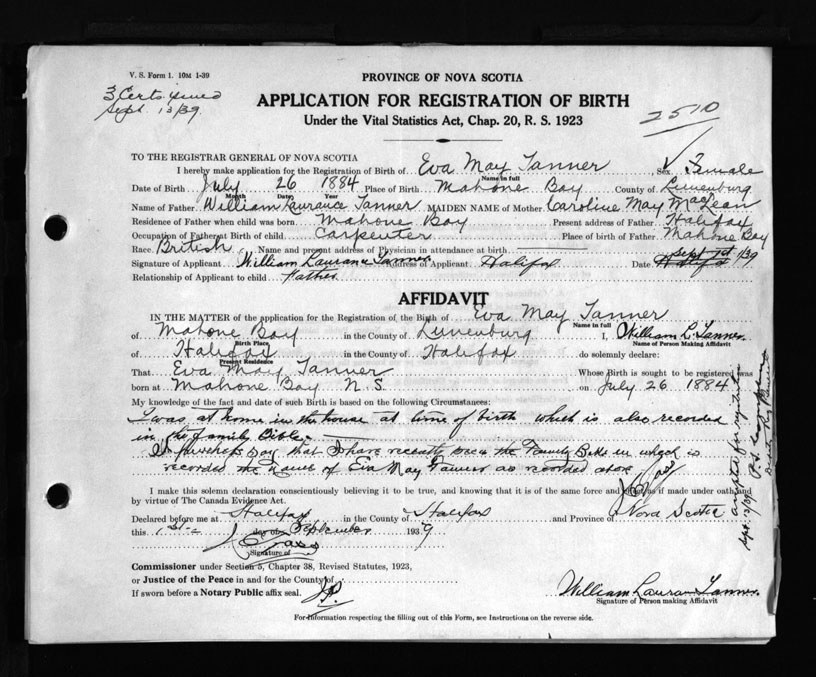 V. S. Form 1. 10M 1-39
3 Certs. issued
Sept. 13/39.
PROVINCE OF NOVA SCOTIA
APPLICATION FOR REGISTRATION OF BIRTH
2510
Under the Vital Statistics Act, Chap. 20, R. S. 1923
TO THE REGISTRAR GENERAL OF NOVA SCOTIA
I hereby make application for the Registration of Birth of Eva May Tanner Sex Female
Name in full
Date of Birth July 26 1884 Place of Birth Mahone Bay County of Lunenburg
Month Date Year
Name of Father William Laurance Tanner MAIDEN NAME of Mother Caroline May MacLean
Residence of Father when child was born Mahone Bay Present address of Father Halifax
Occupation of Father at Birth of child Carpenter Place of birth of Father Mahone Bay
Race British Name and present address of Physician in attendance at birth
Signature of Applicant William Laurance Tanner Address of Applicant Halifax Date Halifax Sept 1st/39
Relationship of Applicant to child Father
AFFIDAVIT
IN THE MATTER of the application for the Registration of the Birth of Eva May Tanner
Name in full
of Mahone Bay in the County of Lunenburg I, William L. Tanner
Birth Place Name of Person Making Affidavit
of Halifax in the County of Halifax do solemnly declare:
Present Residence
That Eva May Tanner Whose Birth is sought to be registered was
born at Mahone Bay N. S. on July 26 1884
My knowledge of the fact and date of such Birth is based on the following Circumstances:
I was at home in the house at time of birth which is also recorded
in the family Bible.
I further say that I have recently seen the Family Bible in which is
recorded the name of Eva May Tanner as recorded above
I make this solemn declaration conscientiously believing it to be true, and knowing that it is of the same force and effect as if made under oath and
by virtue of The Canada Evidence Act.
Declared before me at Halifax in the County of Halifax and Province of Nova Scotia
this 1st day of September 1939
Signature of
Commissioner under Section 5, Chapter 38, Revised Statutes, 1923,
or Justice of the Peace in and for the County of
If sworn before a Notary Public affix seal. J.P.
William Lauran Tanner
Signature of Person making Affidavit
For information respecting the filling out of this Form, see Instructions on the reverse side.
Sept. 13/39 accepted for registration